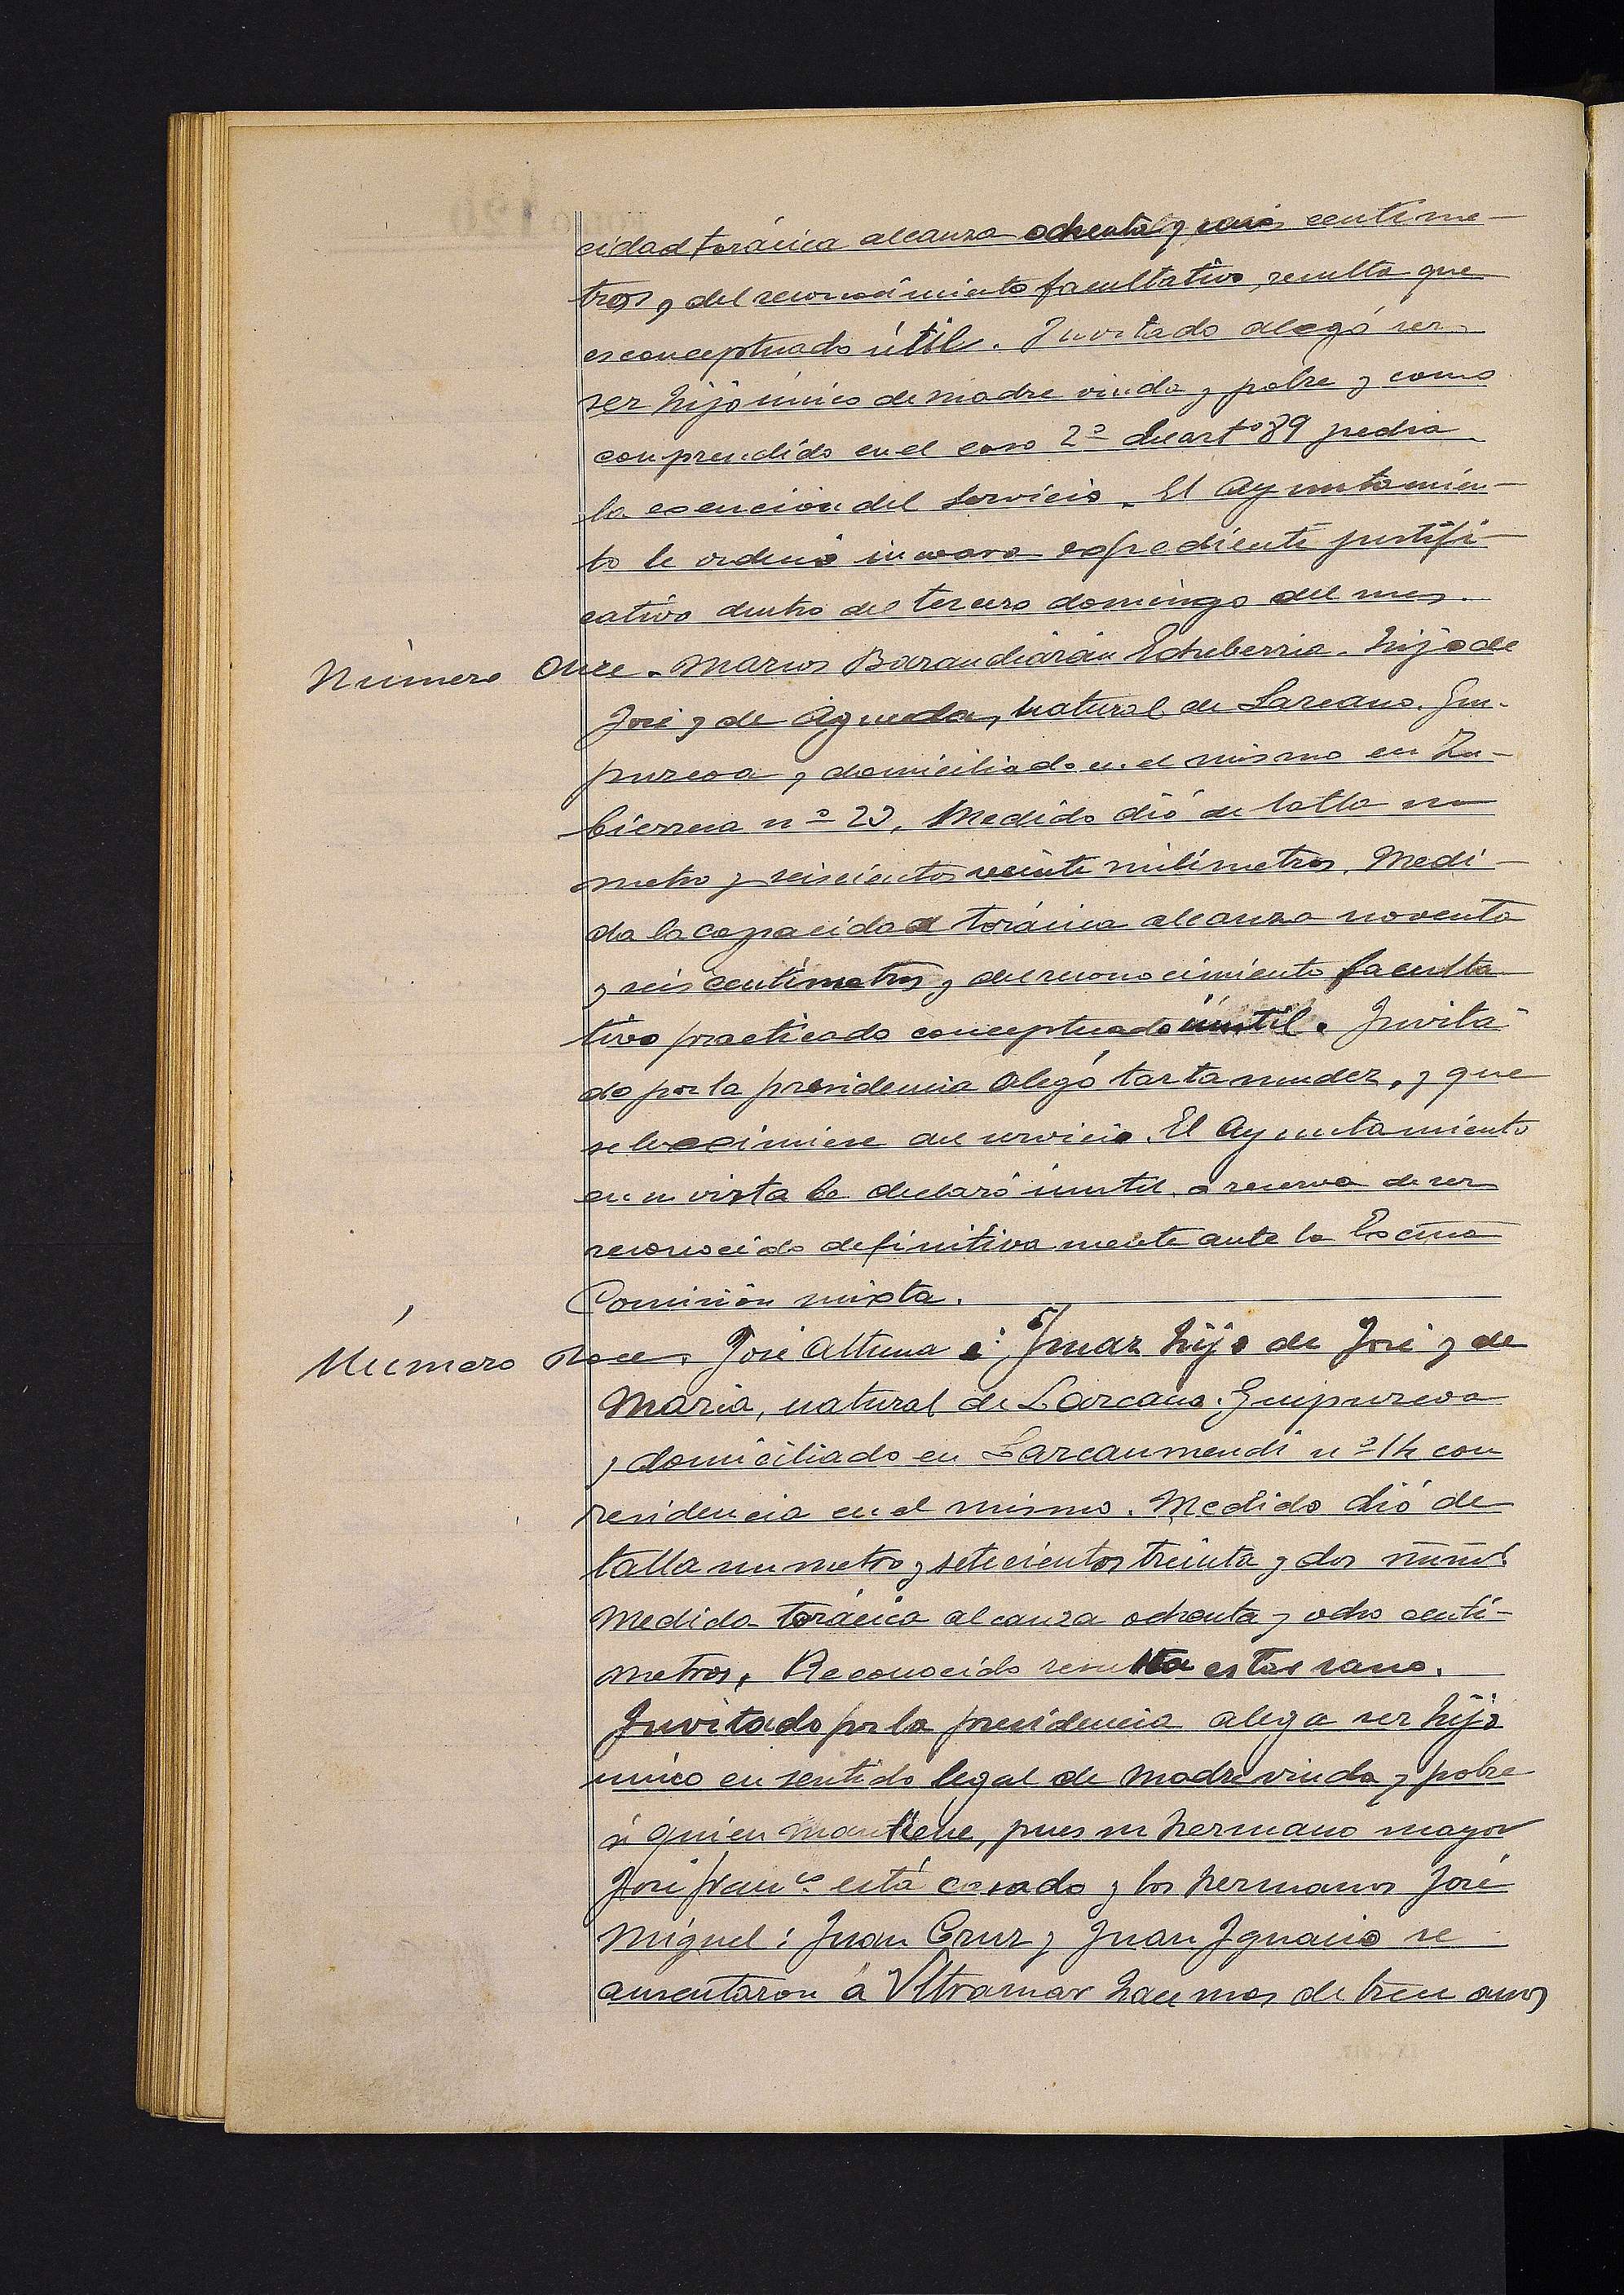 cidad torácica alcanza ochenta y seis centime-
tros y del reconocimiento facultativo, resulta que
es conceptuado útil. Invitado alegó ser
ser hijo único de madre viuda y pobre y como
comprendido en el caso 2º del artº 89 pedia
la esención del servicio. El Ayuntamien-
to le ordenó incoara expediente justifi-
cativo dentro del tercero domingo del mes.
Número Once. Marcos Barandiarán Echeberria. Hijo de
José y de Agueda, natural de Lazcano. Gui-
puzcoa y domiciliado en el mismo en Zu-
bierreca nº 23. Medido dió de talla un
metro y seiscientos veinte milimetros. Medi-
da la capacidad torácica alcanza noventa
y seis centímetros y del reconocimiento faculta
tivo practicado conceptuado inutil. Invita
do por la presidencia alegó tartamudez, y que
se le eximiese del servicio. El Ayuntamiento
en su vista le declaró inutil, a reserva de ser
reconocido definitivamente ante la Excma
Comisión mixta.
Número Doce. José Altuna é Imaz hijo de José y de
Maria, natural de Lazcano. Guipuzcoa
y domiciliado en Lazcaumendi nº 14 con
residencia en el mismo. Medido dió de
talla un metro y setecientos treinta y dos mm.
Medida torácica alcanza ochenta y ocho centi-
metros. Reconocido resulta estar sano.
Invitado por la presidencia alega ser hijo
unico en sentido legal de madre viuda y pobre
á quien mantiene, pues su hermano mayor
José Franco. está casado y los hermanos José
Miguel: Juan Cruz y Juan Ignacio se
ausentaron á Ultramar hace mas de trece años